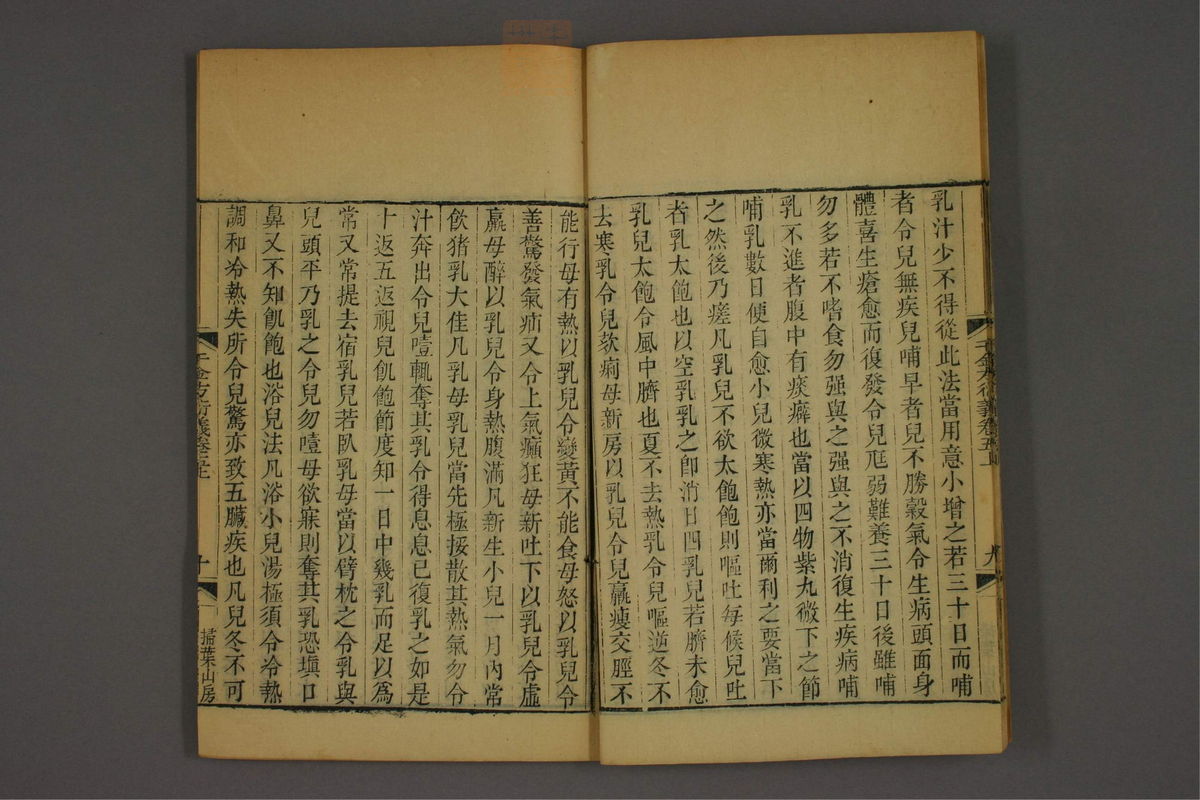 乳汁少不得從此法當用意小增之若三十日而哺
者令兒無疾兒哺早者兒不勝穀氣令生病頭面身
體喜生瘡愈而復發令兒尫弱難養三十日後雖哺
勿多若不嗜食勿强與之强與之不消復生疾病哺
乳不進者腹中有痰癖也當以四物紫丸微下之節
哺乳數日便自愈小兒微寒熱亦當爾利之要當下
之然後乃瘥凡乳兒不欲太飽飽則嘔吐每候兒吐
者乳太飽也以空乳乳之卽消日四乳兒若臍未愈
乳兒太飽令風中臍也夏不去熱乳令兒嘔逆冬不
去寒乳令兒欬痢母新房以乳兒令兒羸瘦交脛不
能行母有熱以乳兒令變黃不能食母怒以乳兒令
善驚發氣疝又令上氣癲狂母新吐下以乳兒令虛
羸母醉以乳兒令身熱腹滿凡新生小兒一月內常
飲猪乳大佳凡乳母乳兒當先極挼散其熱氣勿令
汁奔出令兒噎輒奪其乳令得息息已復乳之如是
十返五返視兒飢飽節度知一日中幾乳而足以爲
常又常提去宿乳兒若臥乳母當以臂枕之令乳與
兒頭平乃乳之令兒勿噎母欲寐則奪其乳恐塡口
鼻又不知飢飽也浴兒法凡浴小兒湯極須令冷熱
調和冷熱失所令兒驚亦致五臟疾也凡兒冬不可
千金方衍義卷五上
十
掃葉山房